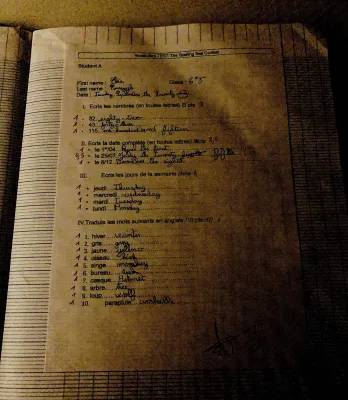 Vocabulary TEST: The Spelling Bee Contest
Student A
First name : Class : 6°5
Last name :
Date : Tuesday September the twenty
I. Ecris les nombres (en toutes lettres) 3 pts 3
1 - 82 eighty-two
1 - 43
1 - 115 one hundred and fifteen
II. Ecris la date complète (en toutes lettres)
1 - le 1er/04 April the first
- le 25/07 July the twenty
- le 8/12 December the eighth
III. Ecris les jours de la semaine
1 - jeudi Thursday
1 - mercredi wednesday
1 - mardi Tuesday
1 - lundi Monday
IV. Traduis les mots suivants en anglais
1 1. hiver winter
1 2. gris grey
1 3. jaune yellow
1 4. oiseau bird
1 5. singe monkey
1 6. bureau desk
1 7. casque helmet
1 8. arbre tree
1 9. loup wolf
1 10. parapluie umbrella